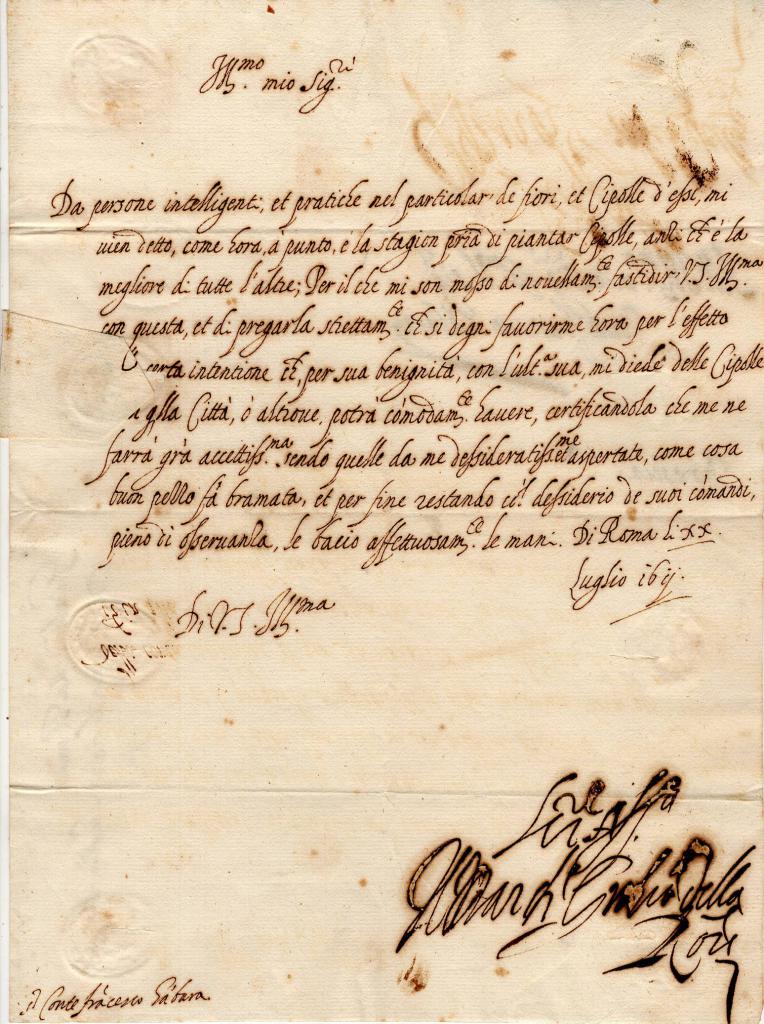 Ill.mo mio Sig.re
Da persone intelligenti, et pratiche nel particolar de fiori, et Cipolle d'essi, mi
vien detto, come hora, à punto, è la stagion pria di piantar Cipolle, anzi ch'è la
megliore di tutte l'altre; Per il che mi son mosso di novellam.te fastidir V.S. Ill.ma
con questa, et di pregarla strettam.te ch si degni favorirme hora per l'effetto
certa intentione ch, per sua benignità, con l'ult.a sua, mi diede delle Cipolle
qlla Città, ò altrove, potrà cómodam.te havere, certificandola che me ne
farrà grà accettiss.ma sendo quelle da me dessideratiss.me et aspettate, come cosa
buon pezzo fà bramata, et per fine restando cól dessiderio de suoi cómandi,
pieno di osservanza, le bacio affettuosam.te le mani. Di Roma li xx.
Luglio 1611.
Di V.S. Ill.ma
Ser.re Aff.
Il Mar Giulio della
Rov
Conte fràcesco Gábara